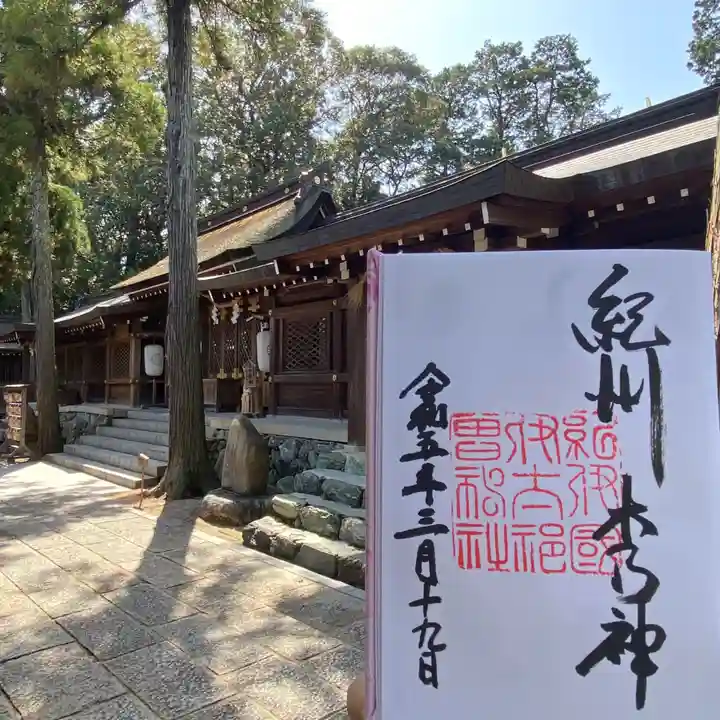 紀州 木乃神
紀伊國
伊太祁
曾神社
令和五年三月十九日